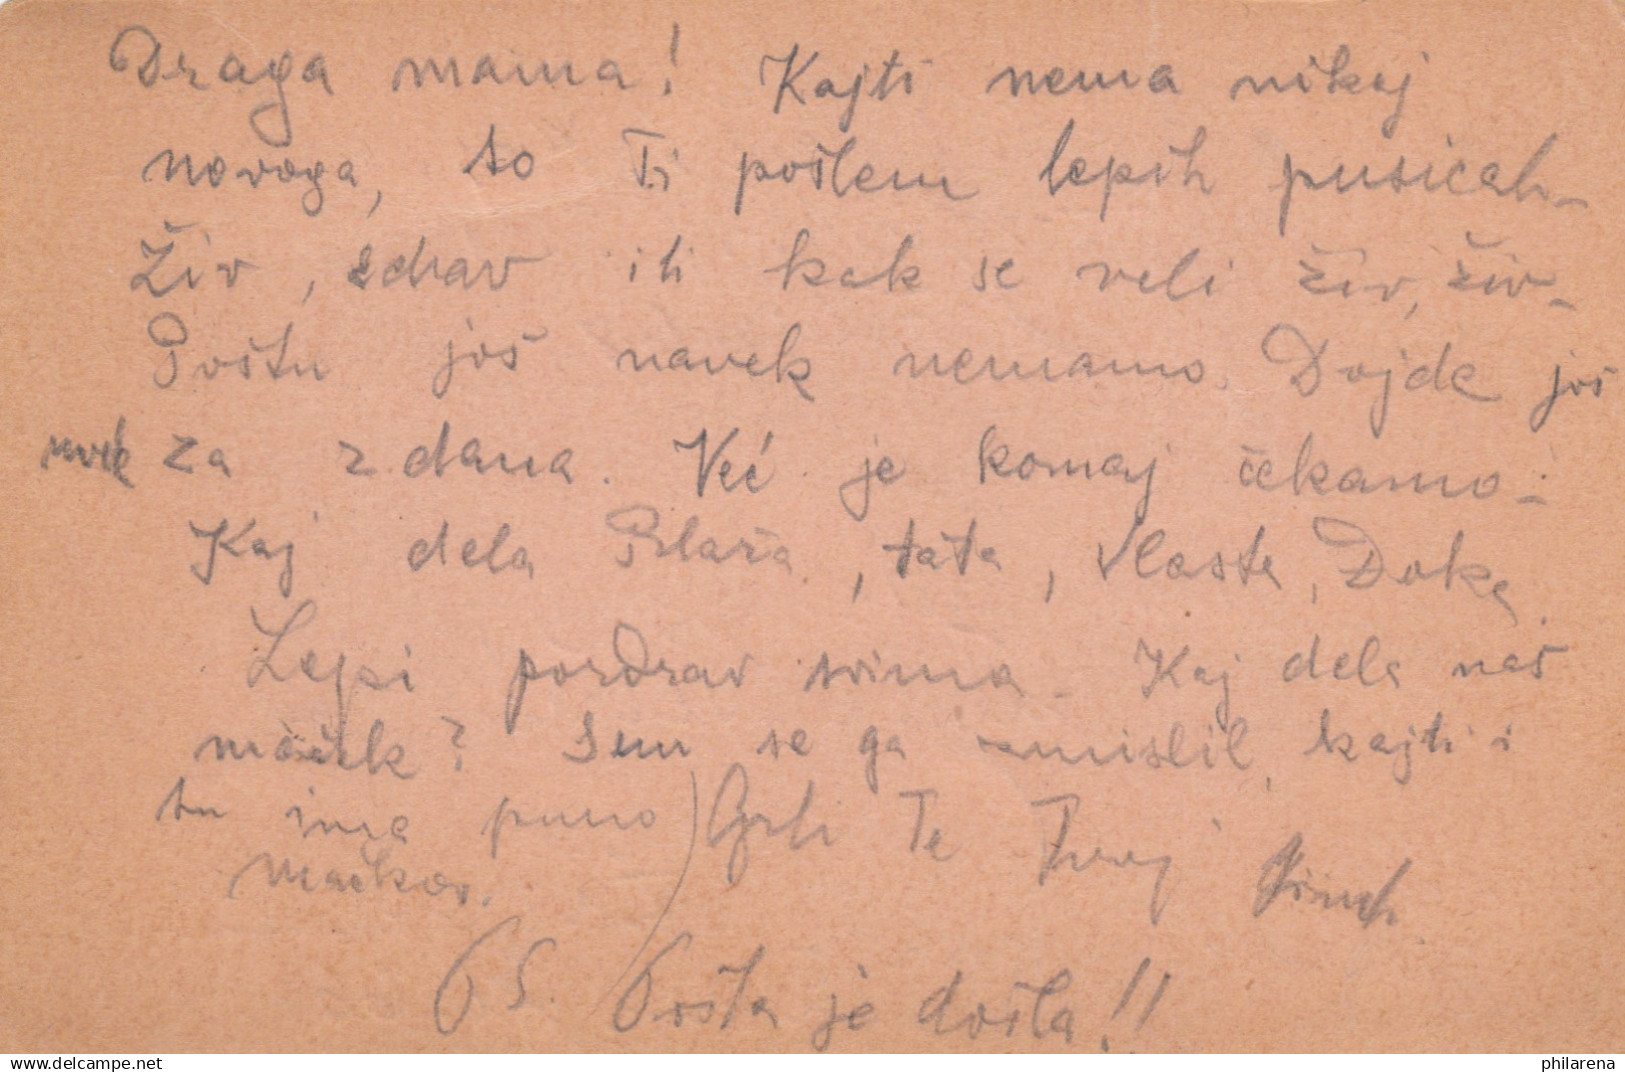 Draga mama! Kajti nema nikaj
novoga, to Ti pošlem lepih pusicah-
Živ, zdrav ili kak se veli živ, živ-
Poštu još navek nemamo. Dojde još
za 2 dana. Već je komaj čekamo-
Kaj dela, tata, Vlasta, Doka
Lepi pozdrav svima. Kaj dela naš
maček? Sem se ga zmislil, kajti i
tu ima puno) Grli Te Tvoj
mačkov.
PS. Pošta je došla!!
www.delcampe.net
philarena